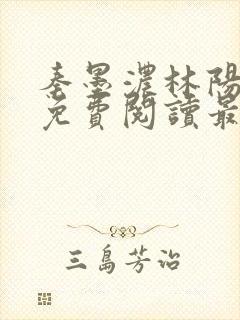 秦墨濃林陽
免費閱讀最
三島芳治